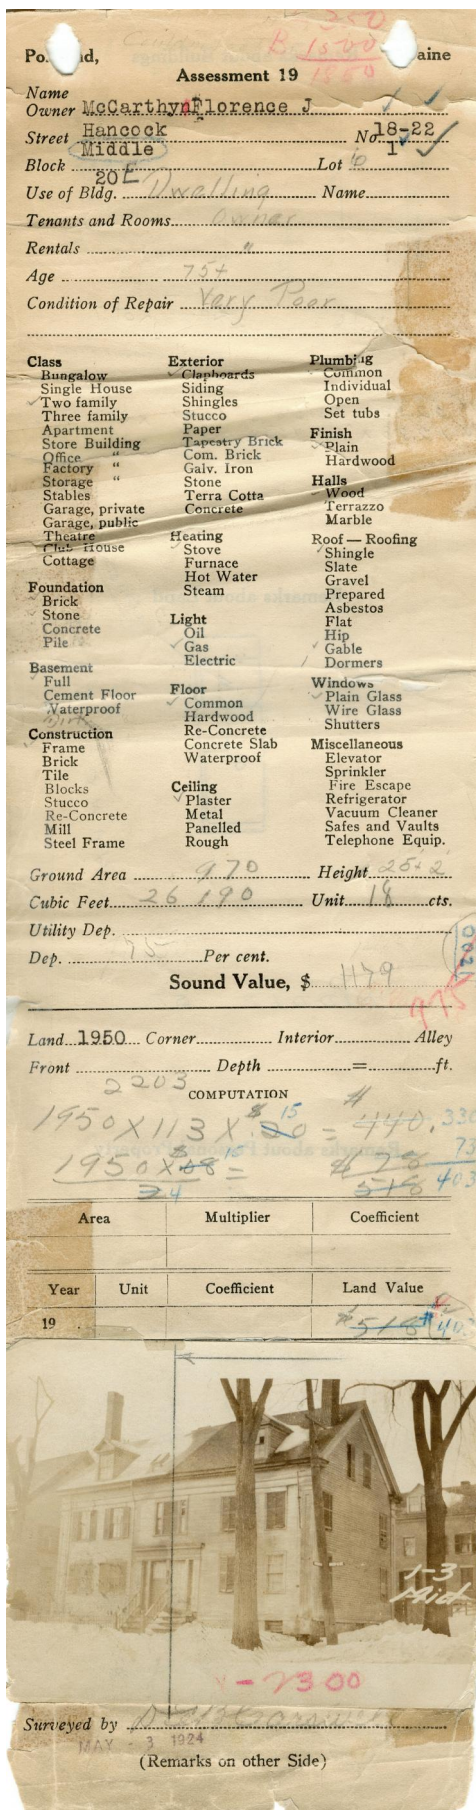 350
B 1500
1850
Portland, Maine
Assessment 19
Name
Owner McCarthy Florence J
Street Hancock No 18-22
Middle 1
Block 20E Lot 10
Use of Bldg. Dwelling Name
Tenants and Rooms Owner
Rentals "
Age 75+
Condition of Repair Very Poor
Class
Bungalow
Single House
Two family
Three family
Apartment
Store Building
Office "
Factory "
Storage "
Stables
Garage, private
Garage, public
Theatre
Club House
Cottage
Foundation
Brick
Stone
Concrete
Pile
Basement
Full
Cement Floor
Waterproof
Dirt
Construction
Frame
Brick
Tile
Blocks
Stucco
Re-Concrete
Mill
Steel Frame
Exterior
Clapboards
Siding
Shingles
Stucco
Paper
Tapestry Brick
Com. Brick
Galv. Iron
Stone
Terra Cotta
Concrete
Heating
Stove
Furnace
Hot Water
Steam
Light
Oil
Gas
Electric
Floor
Common
Hardwood
Re-Concrete
Concrete Slab
Waterproof
Ceiling
Plaster
Metal
Panelled
Rough
Plumbing
Common
Individual
Open
Set tubs
Finish
Plain
Hardwood
Halls
Wood
Terrazzo
Marble
Roof — Roofing
Shingle
Slate
Gravel
Prepared
Asbestos
Flat
Hip
Gable
1 Dormers
Windows
Plain Glass
Wire Glass
Shutters
Miscellaneous
Elevator
Sprinkler
Fire Escape
Refrigerator
Vacuum Cleaner
Safes and Vaults
Telephone Equip.
Ground Area 970 Height 25+2
Cubic Feet 26 190 Unit 18 cts.
Utility Dep.
Dep. 75 Per cent.
Sound Value, $ 1179
975
Land 1950 Corner Interior Alley
Front Depth = ft.
2203
COMPUTATION
1950 X 113 X $ .20 15 = $ 440. 330
1950 X $ 08 15 = $ 78 73
24 518 403
Area Multiplier Coefficient
Year Unit Coefficient Land Value
19 $ 518
1-3
Mid
2300
Surveyed by
MAY - 3 1924
(Remarks on other Side)